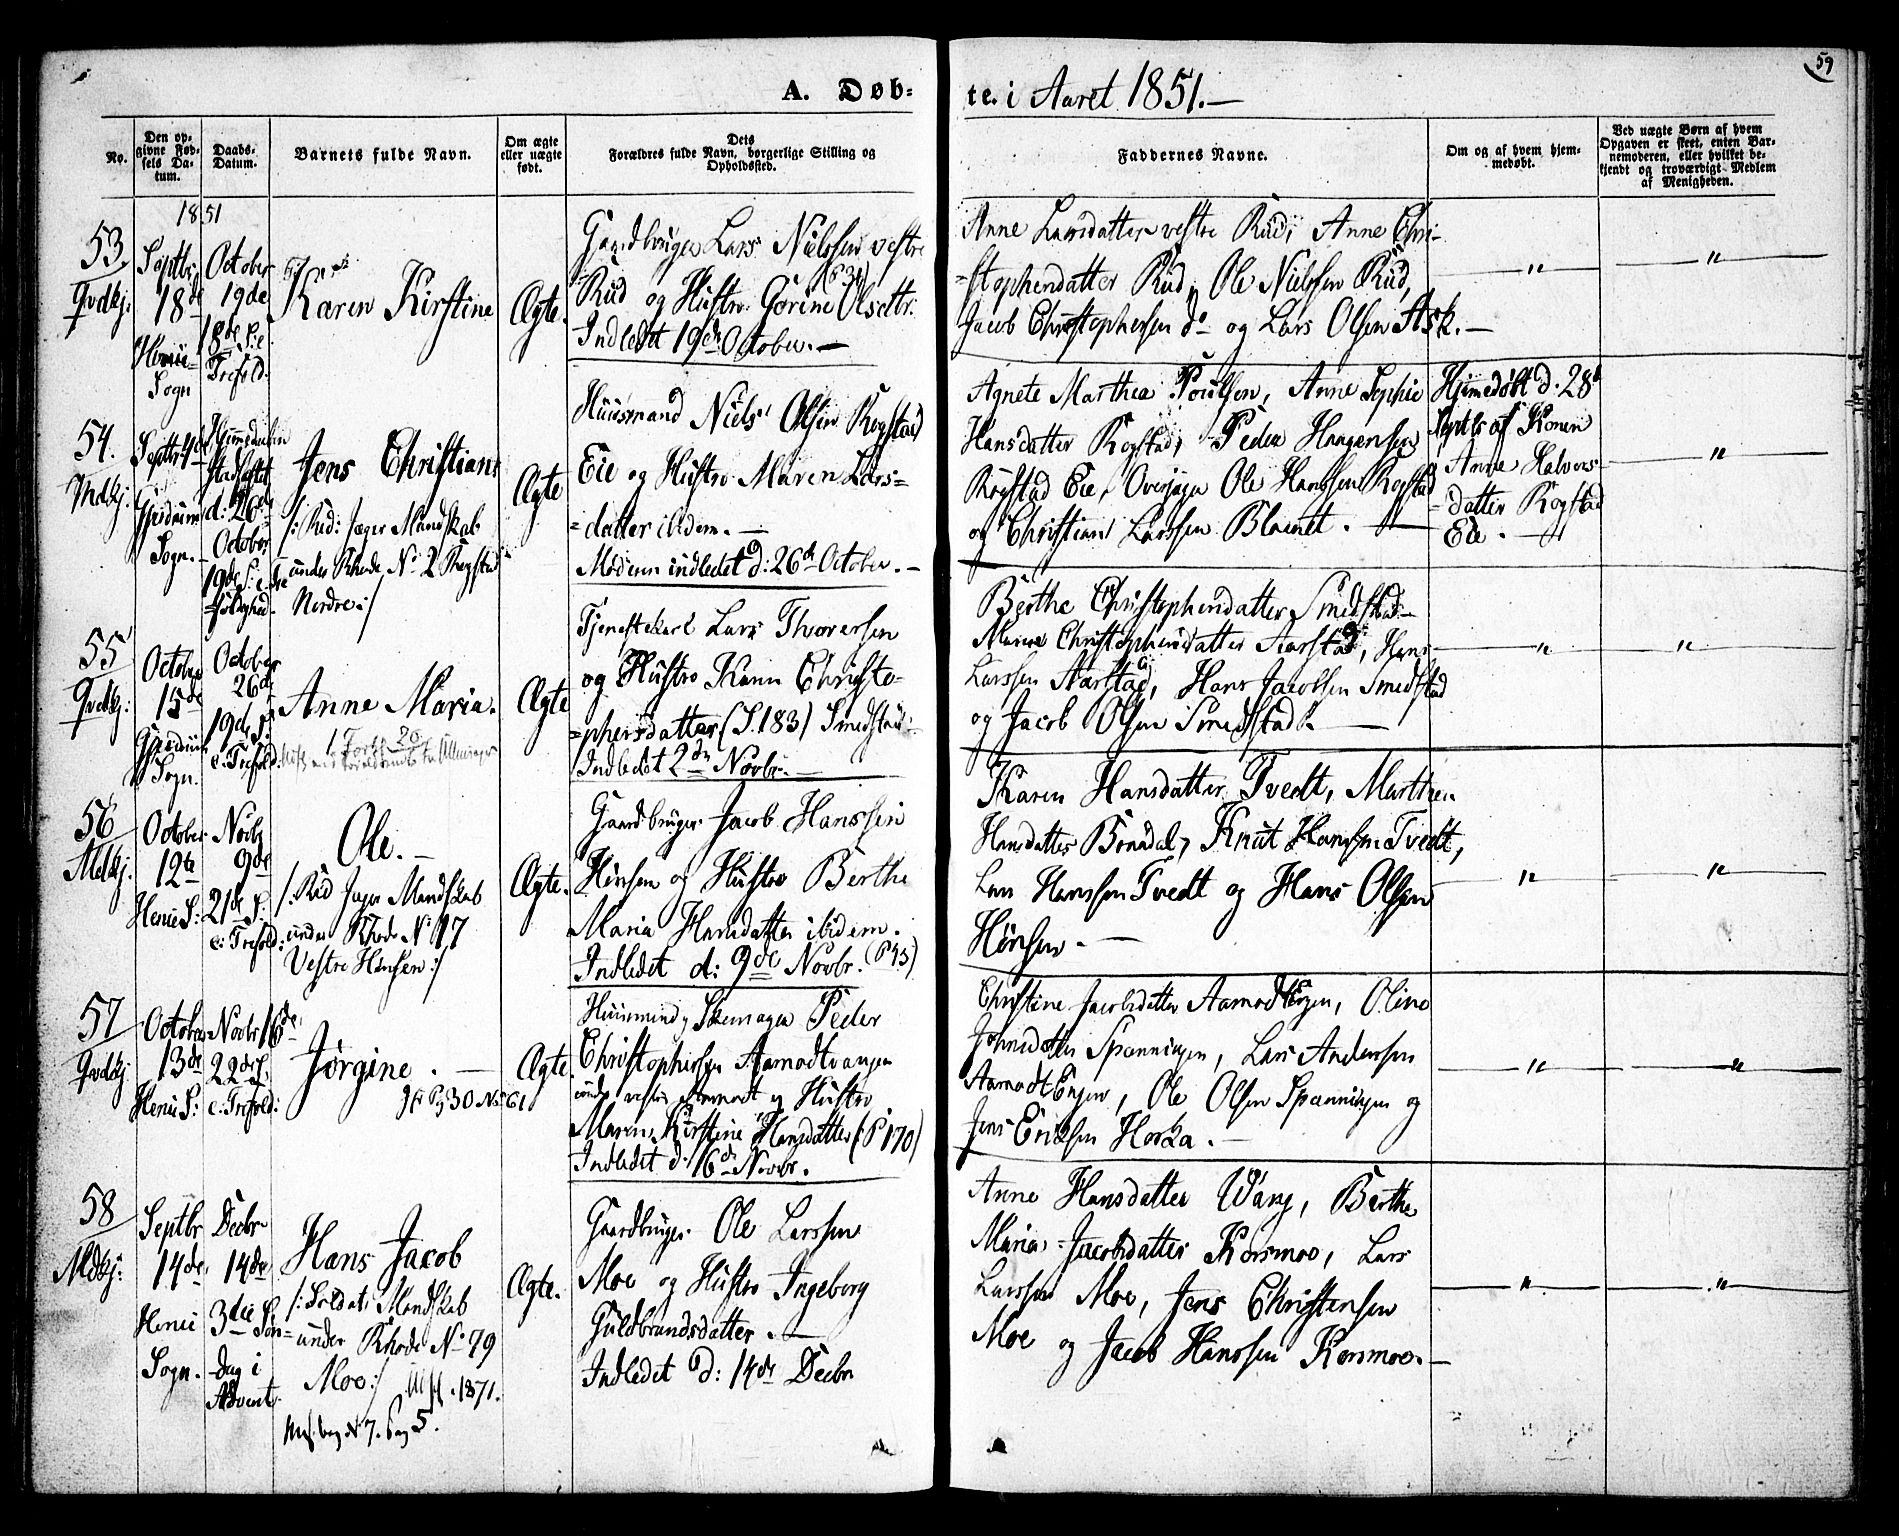 59
A. Døb-
te. i Aaret 1851.-
No.
Den op-
givne Fød-
sels Da-
tum.
Daabs-
Datum.
Barnets fulde Navn.
Om ægte
eller uægte
født.
Dets
Forældres fulde Navn, borgerlige Stilling og
Opholdssted.
Faddernes Navne.
Om og af hvem hjem-
medøbt.
Ved uægte Børn af hvem
Opgaven er skeet, enten Bar-
nemoderen, eller hvilket be-
kjendt og troværdigt Medlem
af Menigheden.
1851
53.
Qvdkj:
Septbr
18de
Henie-
Sogn
October
19de
18de S: e
Trefold.
Karen Kirstine
Ægte.
Gaardbruger Lars Nielssen vestre
Rud og Hustro Gorine Olsdtr.
Indledet 19de October.-
Anne Larsdatter vestre Rud, Anne Chri-
=stophersdatter Rud, Ole Nielssen Rud,
Jacob Christophersen do og Lars Olsen Ask.-
"
"
54.
Mdkj:
Septbr 4de
Gjerdrum
Sogn.-
Hjemmedaaben
Stadfæstet
d: 26de
October
19de S: e. Tre-
foldighed.
Jens Christian
/: Rud: Jæger Mandskab
under Rhode No 2 Rogstad
Nordre:/
Ægte
Huusmand Niels Olsen Rogstad
Eie og Hustro Maren Lars=
=datter ibidem.-
Moderen indledet d: 26de October.-
Agnete Marthea Poulsen, Anne Sophie
Hansdatter Rogstad, Peder Haagensen
Rogstad Eie, Overjæger Ole Hanssen Rogstad
og Christian Larssen Blaanet.-
Hjemmedøbt d. 28de
Septbr af Konen
Anne Halvors-
=datter Rogstad
Eie.-
"
55
Qvdkj:
October
15de
Gjerdrum
Sogn.
October
26de
19de S:
e: Trefold:
Anne Maria.
Ægte
Tjenestekarl Lars Thoresen
og Hustro Karen Christo-
=phersdatter (S. 183) Smedstad
Indledet 2den Novbr.-
Berthe Christophersdatter Smedstad-
Maren Christophersdatter Aarstad, Hans
Larssen Aarstad, Hans Jacobsen Smedstad
og Jacob Olsen Smedstad.-
"
"
56
Mdkj:
October
12te
Henie S:
Novbr
9de
21de S:
e: Trefold:
Ole.-
/: Rud Jæger Mandskab
under Rhode No 17
Vestre Hønsen:/
Ægte.
Gaardbruger Jacob Hanssen
Hønsen og Hustro Berthe
Maria Hansdatter ibidem.
Indledet d: 9de Novbr. (P 45)
Karen Hansdatter Tvedt, Marthea
Hansdatter Braadal, Knut Hanssen Tvedt,
Lars Hanssen Tvedt og Hans Olsen
Hønsen.-
"
"
57
Qvdkj
October
13de
Henie S:
Novbr 16de
22de S:
e: Trefold:
Jørgine.-
Ægte
Huusmand, Skomager Peder
Christophersen Aamodtvangen
under vestre Aamodt og Hustro
Maren Kirstine Hansdatter (P 170)
Indledet d: 16de Novbr.
Christine Jacobsdatter Aamodtengen, Oline
Johnsdatter Spanningen, Lars Andersen
Aamodt Engen, Ole Olsen Spanningen og
Jens Eriksen Horka.-
"
"
58
Mdkj:
Septbr
14de
Henie
Sogn.
Decbr
14de
3die Søn=
=dag i
Advent.
Hans Jacob
/: Soldat: Mandskab
under Rhode No 79
Moe:/ 1871.
No 7. Pag 5.
Ægte.
Gaardbruger Ole Larssen
Moe og Hustro Ingeborg
Guldbrandsdatter.-
Indledet d: 14de Decbr
Anne Hansdatter Wang, Berthe
Maria Jacobsdatter Korsmoe, Lars
Larssen Moe, Jens Christensen
Moe og Jacob Hanssen Korsmoe.-
"
"